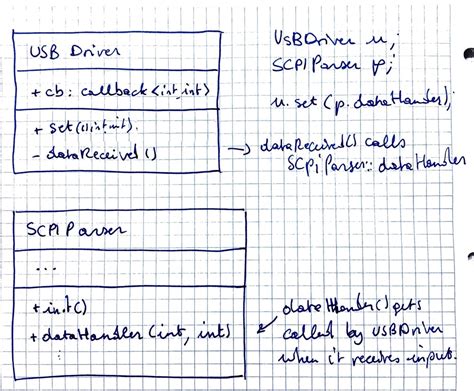 USB Driver
+ cb: callback<int,int>
+ set(
- dataReceived()
USBDriver u;
SCPIParser p;
u.set(p.dataHandler);
→ dataReceived() calls
SCPiParser::dataHandler
SCPI Parser
...
+ init()
+ dataHandler(int, int)
:
dataHandler() gets
called by USBDriver
when it receives input.